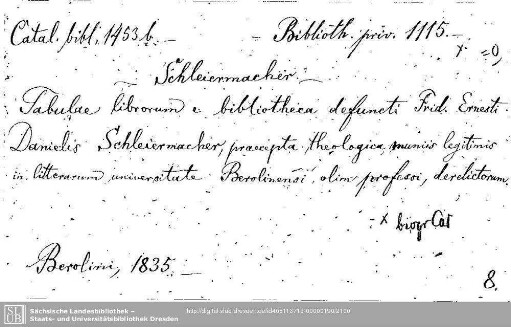 Catal. bibl. 1453 b. — — Biblioth. priv. 1115. —
x =0,
Schleiermacher. —
Tabulae librorum e bibliotheca defuncti Frid. Ernesti
Danielis Schleiermacher, praecepta theologica muniis legitimis
in litterarum universitate Berolinensi olim professi, derelictorum.
- x biogr Cat
Berolini, 1835. —
8.
Sächsische Landesbibliothek –
Staats- und Universitätsbibliothek Dresden